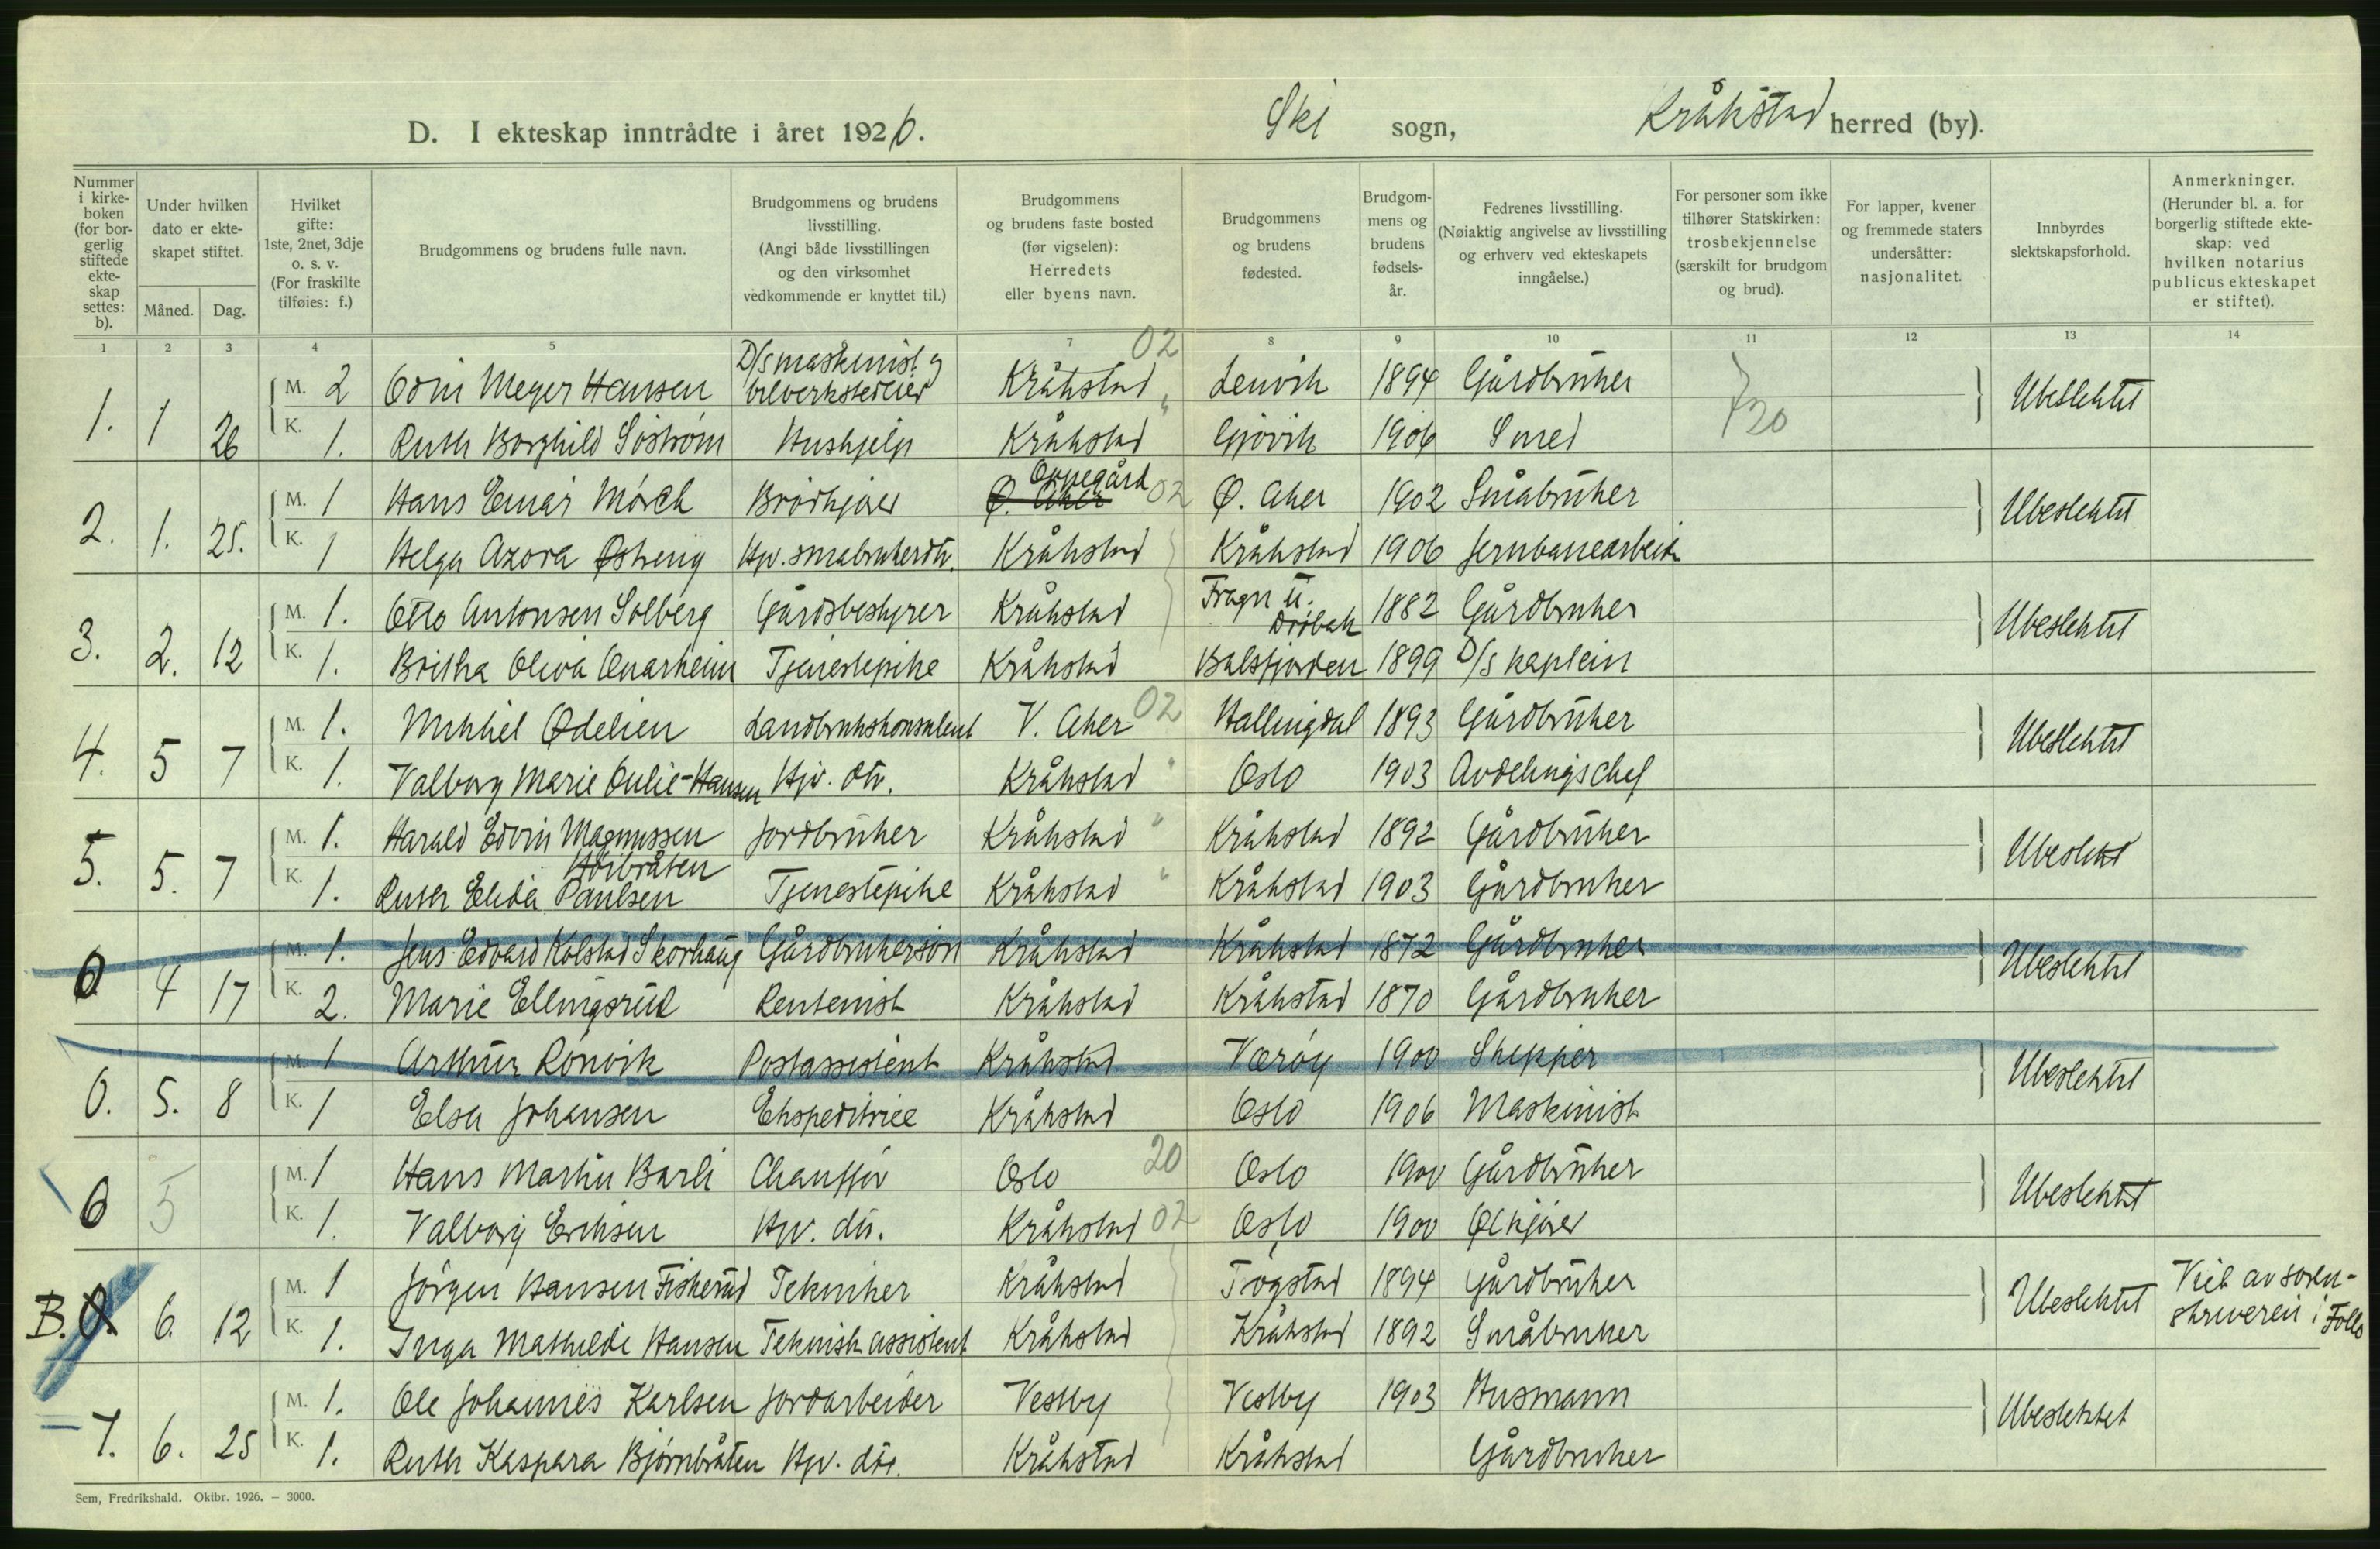 D. I ekteskap inntrådte i året 1926. Ski sogn, Kråkstad herred (by).
Nummer i kirke-boken (for bor-gerlig stiftede ekte-skap settes: b).
Under hvilken dato er ekte-skapet stiftet.
Måned. Dag.
Hvilket gifte: 1ste, 2net, 3dje o. s. v. (For fraskilte tilføies: f.)
Brudgommens og brudens fulle navn.
Brudgommens og brudens livsstilling. (Angi både livsstillingen og den virksomhet vedkommende er knyttet til.)
Brudgommens og brudens faste bosted (før vigselen): Herredets eller byens navn.
Brudgommens og brudens fødested.
Brudgom-mens og brudens fødsels-år.
Fedrenes livsstilling. (Nøiaktig angivelse av livsstilling og erhverv ved ekteskapets inngåelse.)
For personer som ikke tilhører Statskirken: trosbekjennelse (særskilt for brudgom og brud).
For lapper, kvener og fremmede staters undersåtter: nasjonalitet.
Innbyrdes slektskapsforhold.
Anmerkninger. (Herunder bl. a. for borgerlig stiftede ekte-skap: ved hvilken notarius publicus ekteskapet er stiftet).
1 2 3 4 5 7 8 9 10 11 12 13 14
02
1. 1 26 M. 2 Odin Meyer Hansen D/s maskinist og bilverkstedeier Kråkstad Lenvik 1894 Gårdbruker Ubeslektet
K. 1. Ruth Borghild Sistrøm Hushjelp Kråkstad Gjøvik 1906 Smed 720
2. 1. 25. M. 1 Hans Einar Mörck Brödkjörer Ø. Aker Oppegård 02 Ø. Aker 1902 Småbruker Ubeslektet
K. 1 Helga Azora Østreng Hjv. småbrukerdtr. Kråkstad Kråkstad 1906 Jernbanearbeider
3. 2. 12 M. 1. Otto Antonsen Solberg Gårdsbestyrer Kråkstad Frogn u. Dröbak 1882 Gårdbruker Ubeslektet
K. 1. Britha Oliva Enarheim Tjenestepike Kråkstad Balsfjorden 1899 D/s kaptein
4. 5 7 M. 1. Mikkel Ødelien Landbrukskonsulent V. Aker 02 Hallingdal 1893 Gårdbruker Ubeslektet
K. 1. Valborg Marie Aulie-Hansen Hjv. dtr. Kråkstad Oslo 1903 Avdelingschef
5. 5. 7 M. 1. Harald Edvin Magnussen Jordbruker Kråkstad " Kråkstad 1892 Gårdbruker Ubeslektet
Hörbråten
K. 1. Ruth Elida Paulsen Tjenestepike Kråkstad " Kråkstad 1903 Gårdbruker
0 4 17 M. 1. Jens Edvard Kolstad Skorhaug Gårdbrukersön Kråkstad Kråkstad 1872 Gårdbruker Ubeslektet
K. 2. Marie Ellingsrud Rentenist Kråkstad Kråkstad 1870 Gårdbruker
0. 5. 8 M. 1 Arthur Rönvik Postassistent Kråkstad Værøy 1900 Skipper Ubeslektet
K. 1 Elsa Johansen Ekspeditrice Kråkstad Oslo 1906 Maskinist
6 5 M. 1 Hans Martin Barli Chaufför Oslo 20 Oslo 1900 Gårdbruker Ubeslektet
K. 1. Valborg Eriksen Hjv. dtr. Kråkstad 02 Oslo 1900 Ölkjörer
B. 0. 6. 12 M. 1 Jörgen Hansen Fiskerud Tekniker Kråkstad Trögstad 1894 Gårdbruker Ubeslektet Viet av soren-
skriveren i Follo
K. 1. Inga Mathilde Hansen Teknisk assistent Kråkstad Kråkstad 1892 Småbruker
7. 6. 25 M. 1. Ole Johannes Karlsen Jordarbeider Vestby Vestby 1903 Husmann Ubeslektet
K. 1. Ruth Kaspara Björnbråten Hjv. dtr. Kråkstad Kråkstad Gårdbruker
Sem, Fredrikshald. Oktbr. 1926. — 3000.